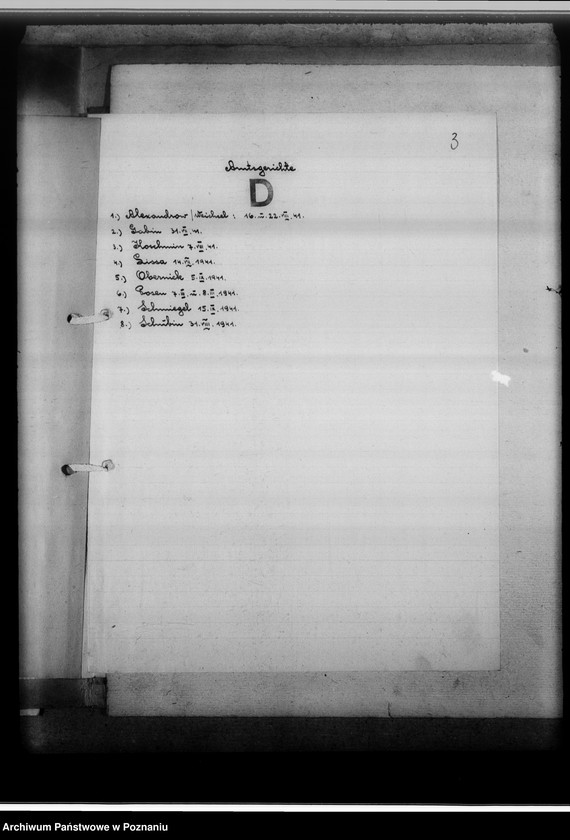 3
Amtsgerichte
D
1.) Alexandrow/Weichsel : 16. u. 22. VII. 41.
2.) Gabin 31. VII. 41.
3.) Koschmin 7. VIII. 41.
4.) Lissa 14. VII. 1941.
5.) Obernick 5. IX. 1941.
6.) Posen 7. u. 8. 1941.
7.) Schmiegel 15. IX. 1941.
8.) Schubin 31. VIII. 1941.
Archiwum Państwowe w Poznaniu